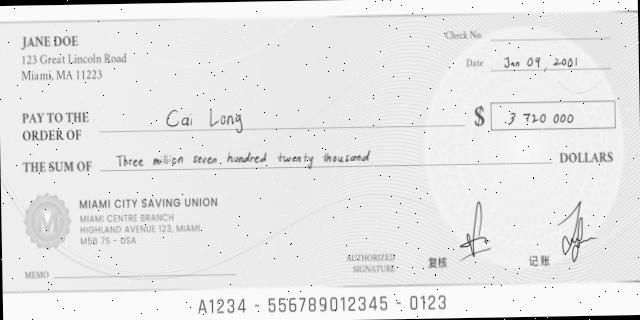 JANE DOE
123 Great Lincoln Road
Miami, MA 11223
Check No.
Date Jan 09, 2001
PAY TO THE
ORDER OF Cai Long
$ 3 720 000
THE SUM OF Three million seven hundred twenty thousand DOLLARS
MIAMI CITY SAVING UNION
MIAMI CENTRE BRANCH
HIGHLAND AVENUE 123, MIAMI
M56 7S - USA
AUTHORIZED
SIGNATURE
复核
记账
MEMO
A1234 - 556789012345 - 0123